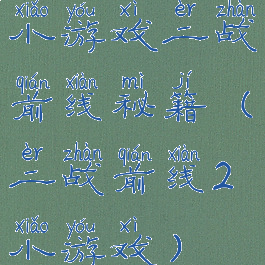 xiǎo yóu xì èr zhàn
小游戏二战
qián xiàn mì jí
前线秘籍(
èr zhàn qián xiàn
二战前线2
xiǎo yóu xì
小游戏)